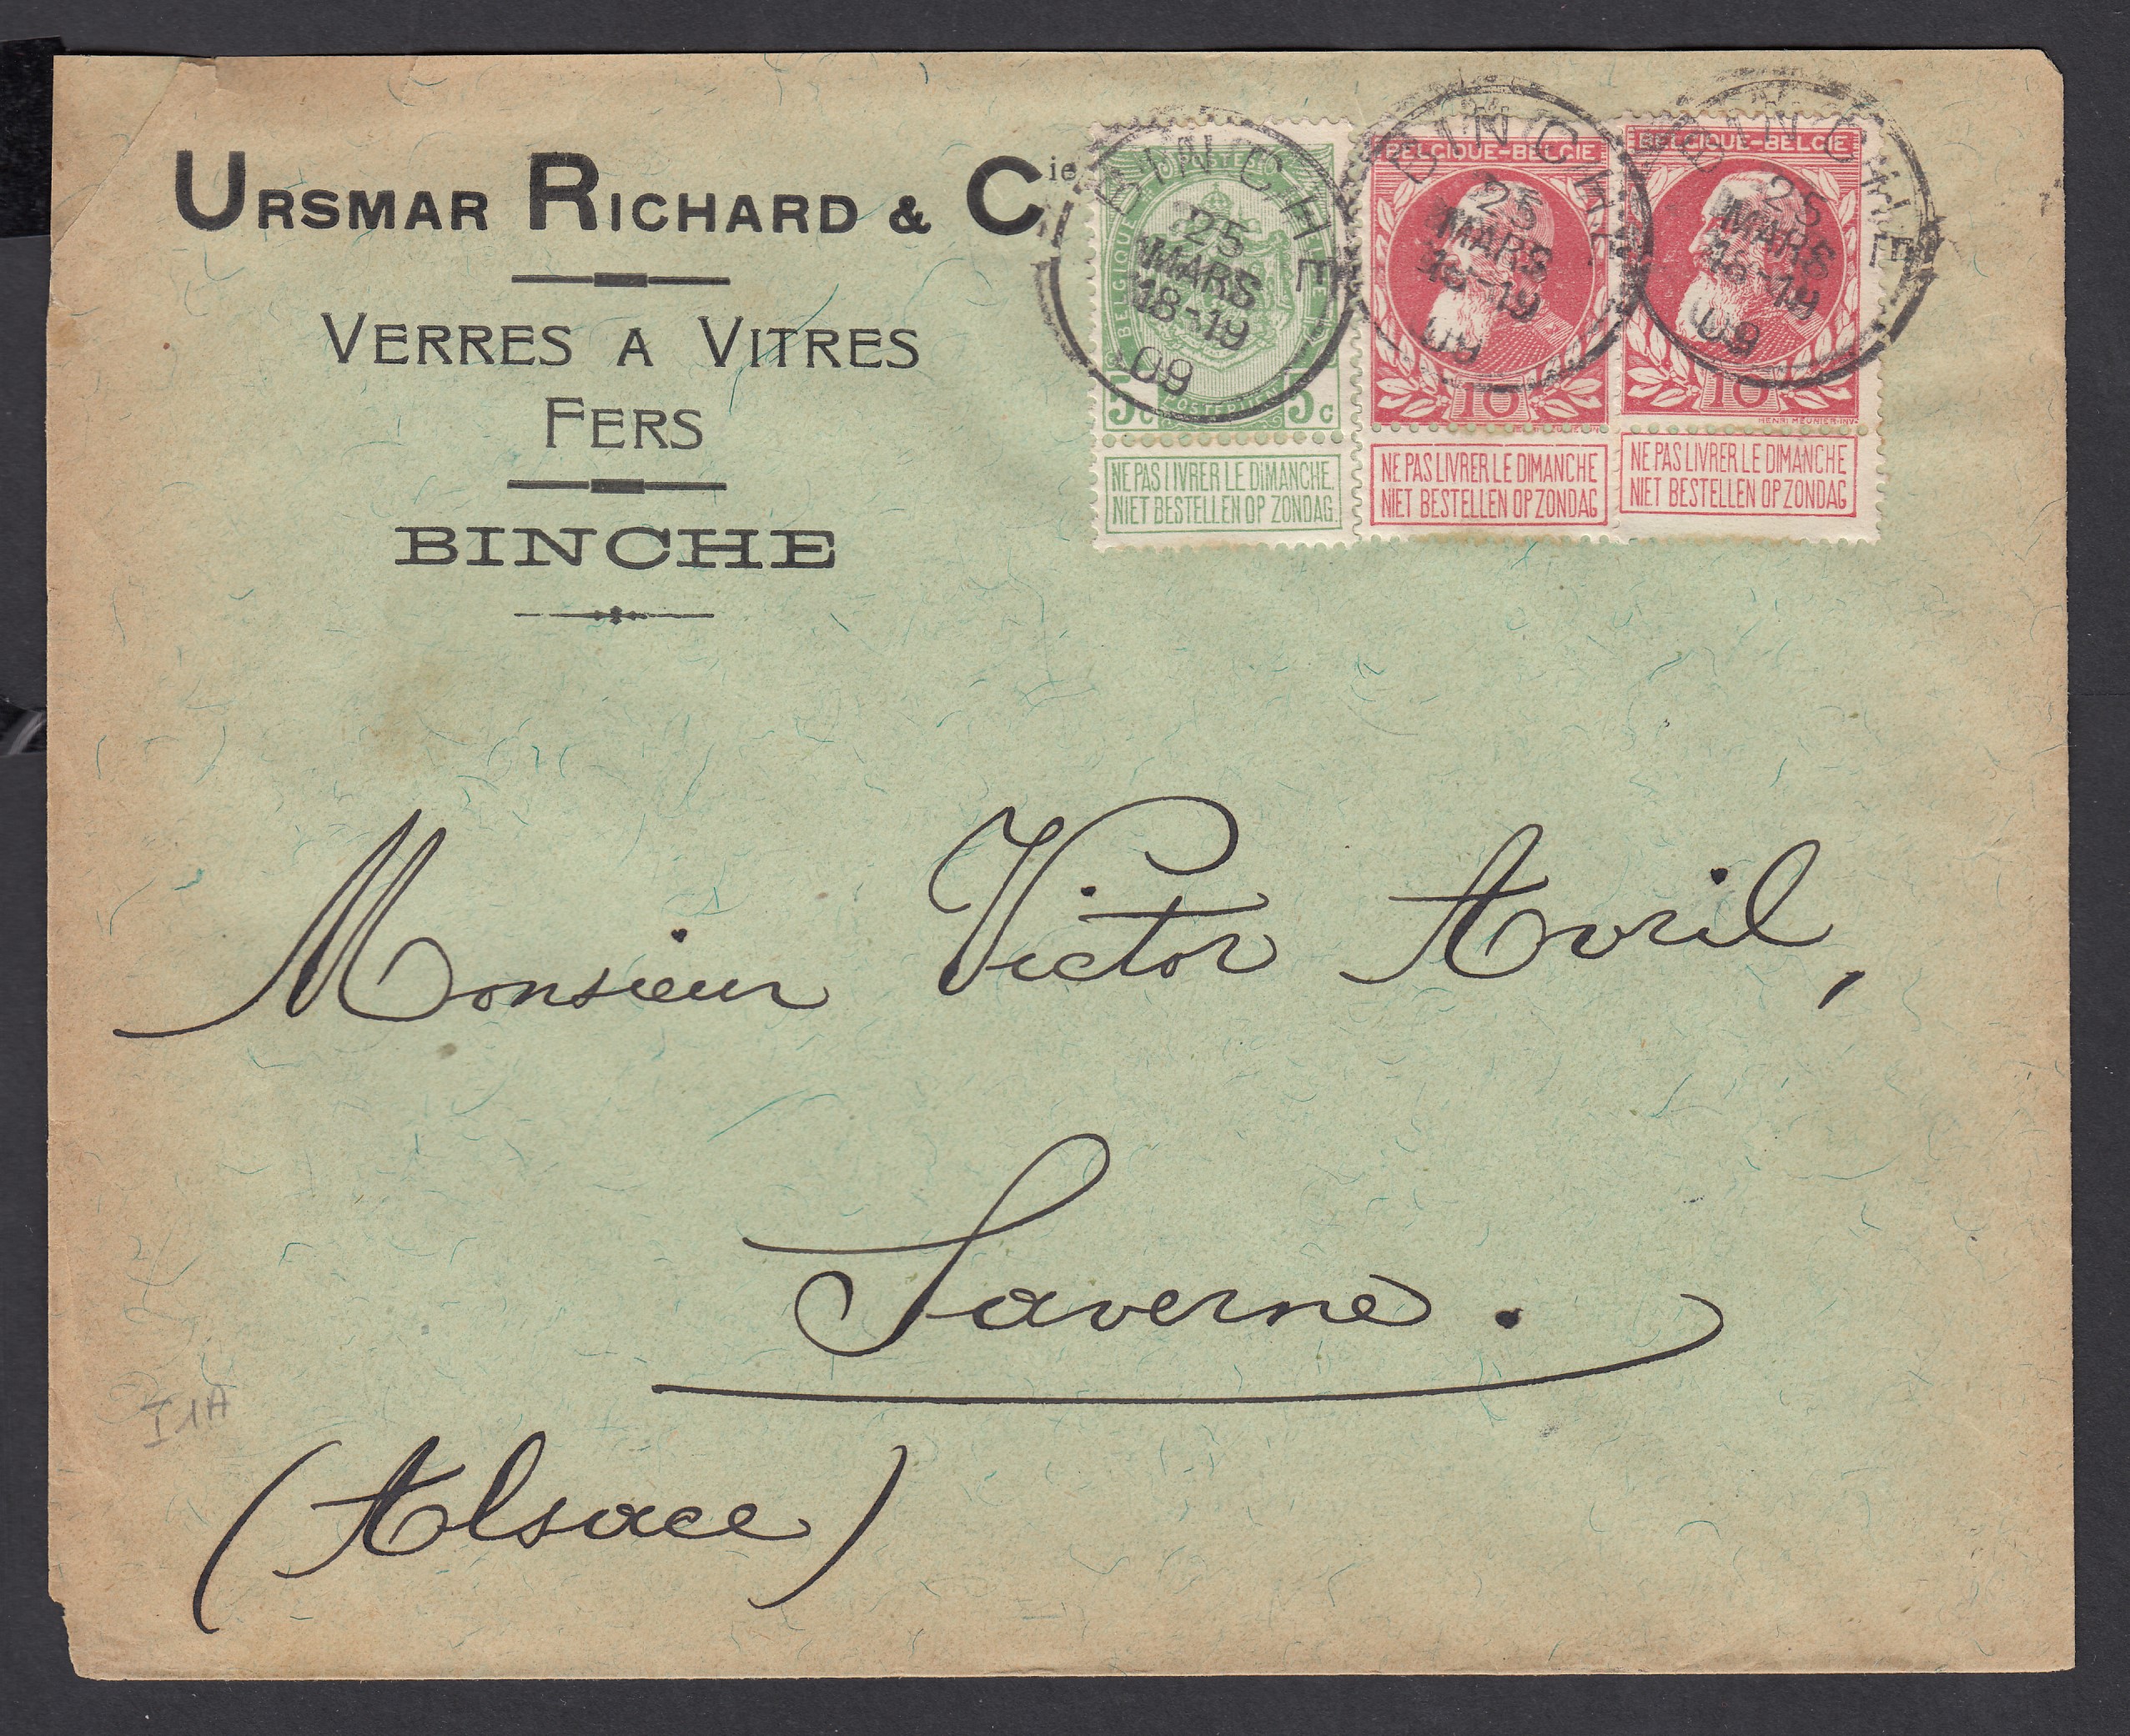 URSMAR RICHARD & Cie
VERRES A VITRES
FERS
BINCHE
POSTE
BELGIQUE
5c 5c
NE PAS LIVRER LE DIMANCHE.
NIET BESTELLEN OP ZONDAG
BINCHE
25
MARS
18-19
09
BELGIQUE-BELGIE
10
NE PAS LIVRER LE DIMANCHE
NIET BESTELLEN OP ZONDAG
BINCHE
25
MARS
18-19
09
BELGIQUE-BELGIE
10
HENRI MEUNIER-INV.
NE PAS LIVRER LE DIMANCHE
NIET BESTELLEN OP ZONDAG
BINCHE
25
MARS
18-19
09
Monsieur Victor Avril,
Saverne.
(Alsace)